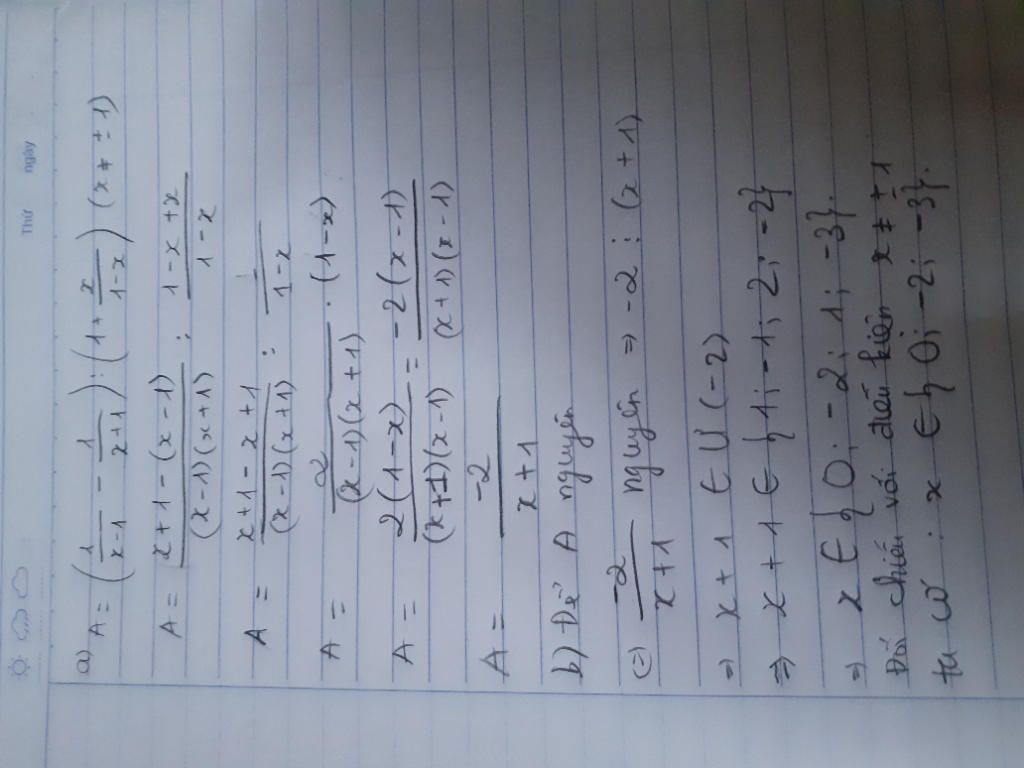 Thứ ngày
a) A = (1/(x-1) - 1/(x+1)) : (1 + x/(1-x)) (x ≠ ±1)
A = (x+1-(x-1))/((x-1)(x+1)) : (1-x+x)/(1-x)
A = (x+1-x+1)/((x-1)(x+1)) : 1/(1-x)
A = 2/((x-1)(x+1)) . (1-x)
A = 2(1-x)/((x+1)(x-1)) = -2(x-1)/((x+1)(x-1))
A = -2/(x+1)
b) Để A nguyên
(=) -2/(x+1) nguyên => -2 ⋮ (x+1)
=> x+1 ∈ Ư(-2)
=> x+1 ∈ {1; -1; 2; -2}
=> x ∈ {0; -2; 1; -3}.
Đối chiếu với điều kiện x ≠ ±1
ta có : x ∈ {0; -2; -3}.